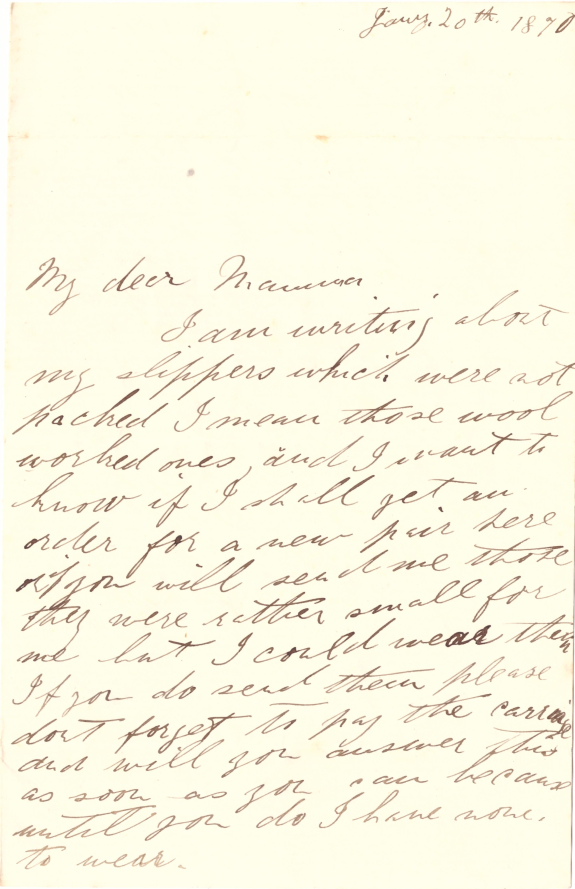 Jany. 20th. 1870
My dear Mamma
I am writing about
my slippers which were not
packed I mean those wool
worked ones, and I want to
know if I shall get an
order for a new pair here
or if you will send me those
they were rather small for
me but I could wear them
If you do send them please
dont forget to pay the carriage
and will you answer this
as soon as you can because
until you do I have none.
to wear.